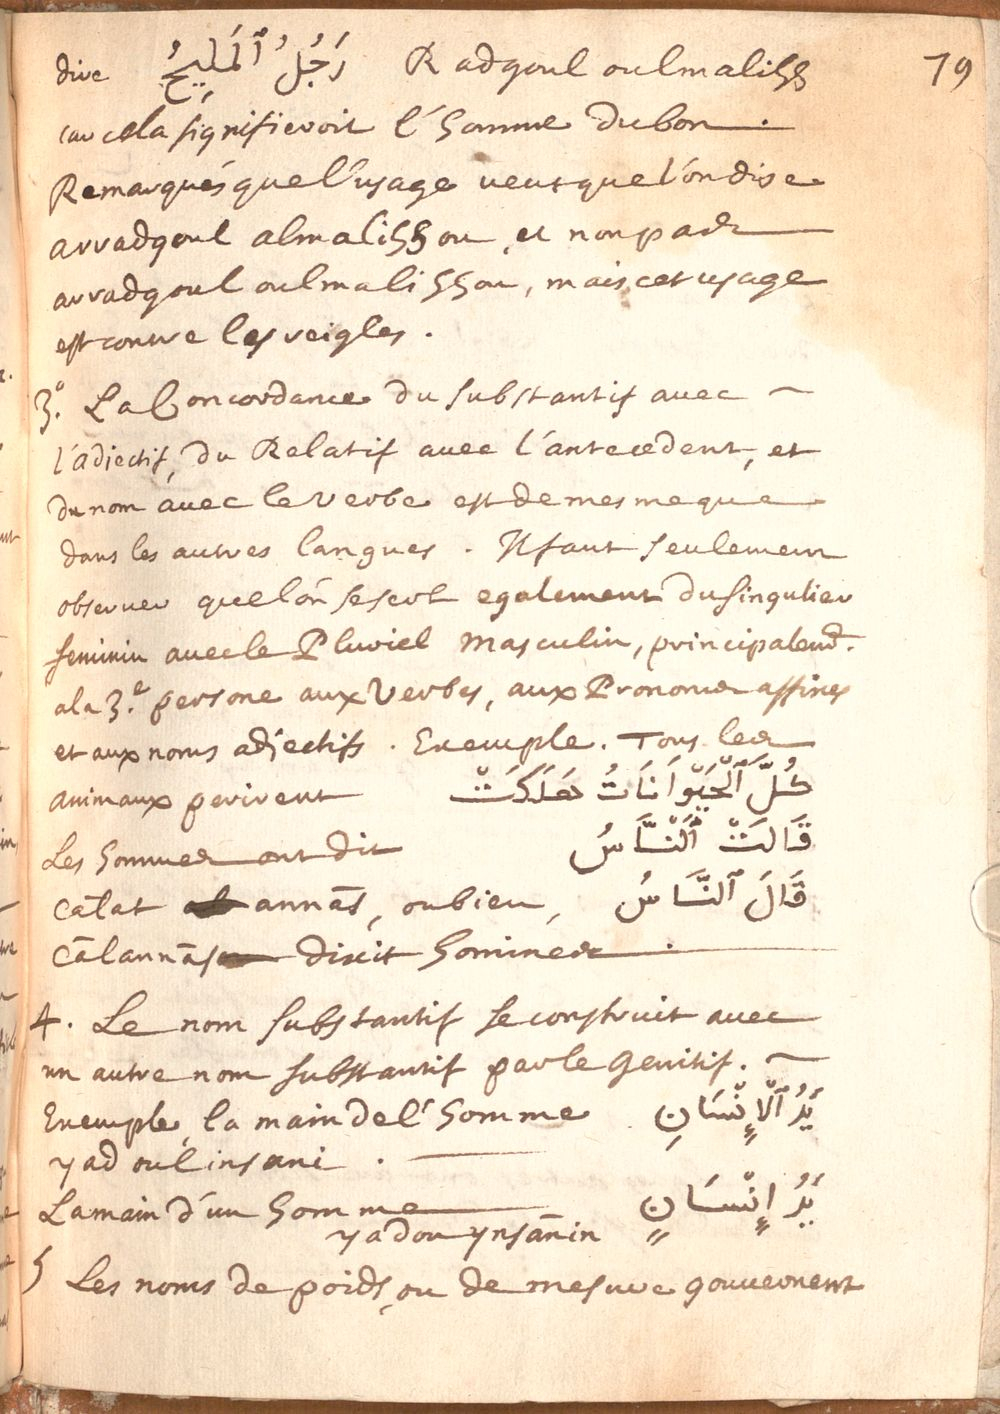 79
dire رَجُلُ ٱلْمَلِيحُ Radgoul oulmalihh
car cela signifieroit l'homme du bon.
Remarqués que l'usage veut que l'on dise
arradgoul almalihhou, et non pas
arradgoul oulmalihhou, mais cet usage
est contre les reigles.
3.° La Concordance du substantif avec
l'adiectif, du Relatif avec l'antecedent, et
du nom avec le verbe est de mesme que
dans les autres langues. Il faut seulement
observer que lon se sert egalement du singulier
feminin avec le Pluriel masculin, principalemt.
a la 3.e persone aux Verbes, aux Pronoms affixes
et aux noms adjectifs. Exemple. Tous les
animaux perirent كُلُّ ٱلْحَيَوَانَاتُ هَلَكَتْ
Les hommes ont dit قَالَتْ ٱلنَّاسُ
cālat annās, ou bien, قَالَ ٱلنَّاسُ
cālannās dixit homines.
4. Le nom substantif se construit avec
un autre nom substantif par le genitif.
Exemple, la main de l'homme يَدُ ٱلْإِنْسَانِ
yad oul insani.
La main d'un homme يَدُ إِنْسَانٍ
yadou ynsānin
5 Les noms de poids, ou de mesure gouvernent